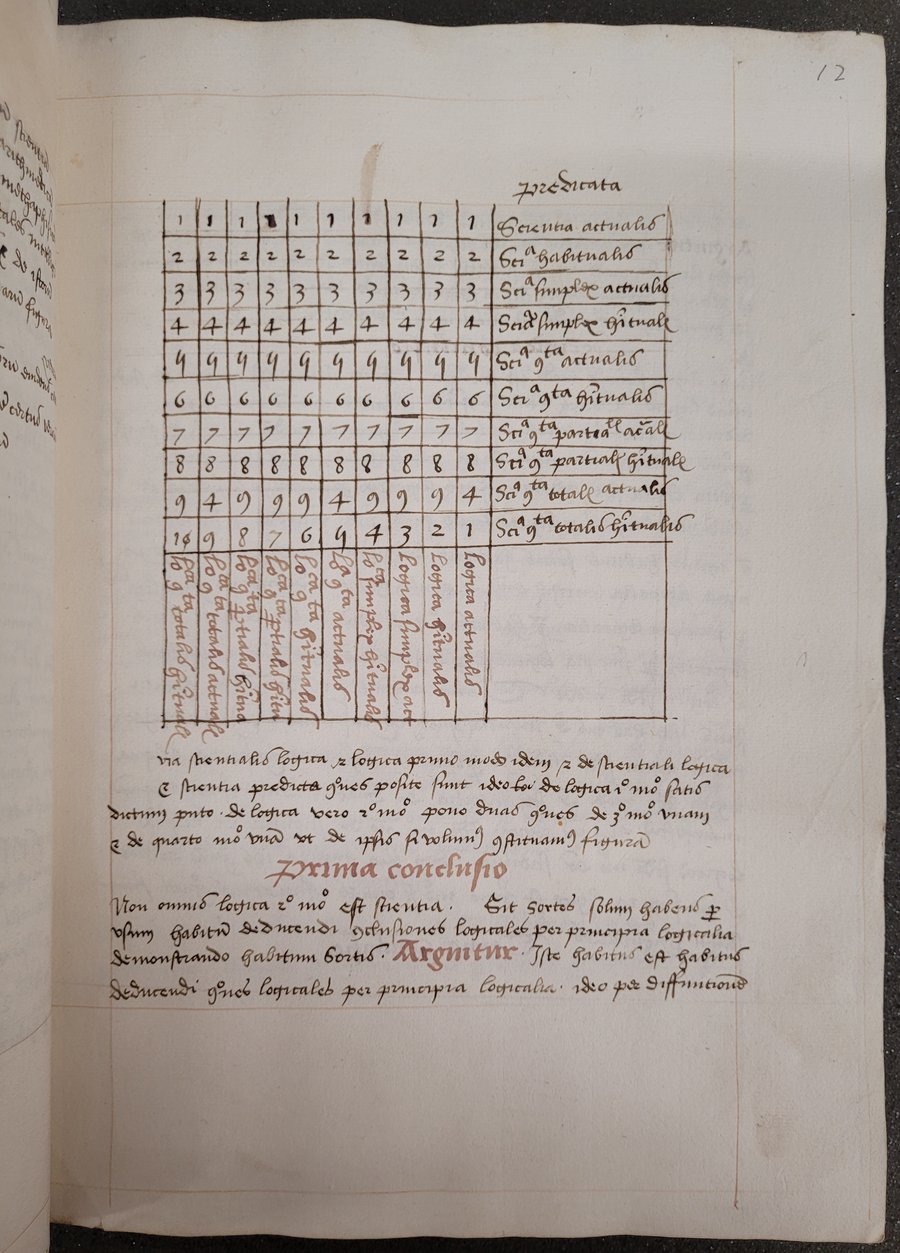 12
predicata
1 1 1 1 1 1 1 1 1 1 Scientia actualis
2 2 2 2 2 2 2 2 2 2 Sciª habitualis
3 3 3 3 3 3 3 3 3 3 Sciª simplex actualis
4 4 4 4 4 4 4 4 4 4 Sciª simplex hītualꝭ
5 5 5 5 5 5 5 5 5 5 Sciª ꝯta actualis
6 6 6 6 6 6 6 6 6 6 Sciª ꝯta hītualis
7 7 7 7 7 7 7 7 7 7 Sciª ꝯta partialꝭ acālꝭ
8 8 8 8 8 8 8 8 8 8 Sciª ꝯta partialꝭ hītualꝭ
9 4 9 9 9 4 9 9 9 4 Sciª ꝯta totalꝭ actualis
10 9 8 7 6 5 4 3 2 1 Sciª ꝯta totalis hītualis
loca ꝯta totalis hītualꝭ
loca ꝯta totalis actualꝭ
loca ꝯta ꝑtialis hītua
loca ꝯta ꝑtialis hītu
loca ꝯta hītualis
loª ꝯta actualis
loca simplex hītualis
Logica simplex act
Logica hītualis
Logica actualis
via scientialis logica ⁊ logica primo modo idem ⁊ de scientiali logica
⁊ scientia predicta ꝯ̄nes posite sunt ideo de logica 1º mº satis
dictum puto. de logica vero 2º mº pono duas ꝯ̄nes de 3º mº vnam
⁊ de quarto mº vnā vt de ipsis ꝯstituam figurā
Prima conclusio
Non omnis logica 2º mº est scientia. Sit Sortes solum habens ꝑ
vsum habitū deducendi ꝯclusiones logicales per principia logicalia
demonstrando habitum Sortis. Arguitur. Iste habitus est habitus
deducendi ꝯ̄nes logicales per principia logicalia. ideo per diffinitionē